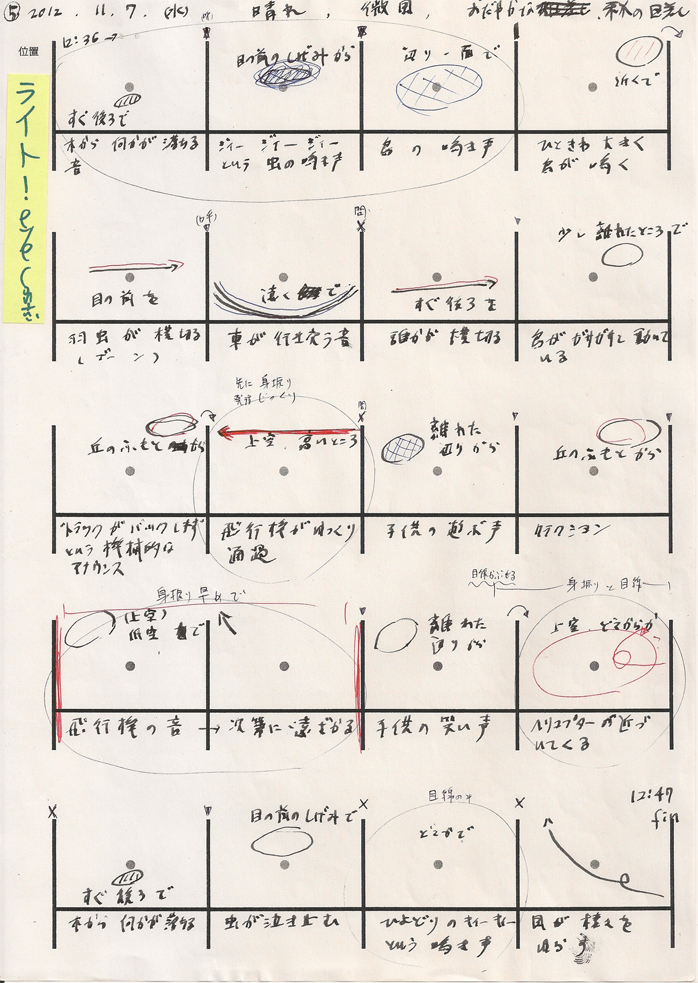 ⑤ 2012. 11. 7. (水) 晴れ, 微風, おだやかな 秋の日差し
位置
12:36 →
ライト!
すぐ後ろで
目の前のしげみから
辺り一面で
近くで
木から 何かが落ちる
音
ジィー ジィー ジィー
という 虫の鳴き声
鳥の 鳴き声
ひときわ 大きく
鳥が 鳴く
(呼)
間
目の前を
遠くで
すぐ後ろを
少し離れたところで
羽虫が 横切る
(ブーン)
車が行き交う音
誰かが 横切る
鳥がガサガサと動いて
いる
先に 身振り
発話 じっくり
間
丘のふもとから
上空、高いところ
離れた
辺りから
丘のふもとから
トラックがバックします
という 機械的な
アナウンス
飛行機がゆっくり
通過
子供の遊ぶ声
クラクション
身振り早めで
目線かぶせる
身振りと目線
(上空)
低空 で
離れた
辺りから
上空、どこからか
飛行機の音 → 次第に遠ざかる
子供の笑い声
ヘリコプターが近づ
いてくる
目線のみ
12:47
fin
すぐ後ろで
目の前のしげみで
どこかで
木から 何かが落ちる
虫が泣き止む
ひよどりのキィーキィー
という 鳴き声
風が 梢を
ゆらす